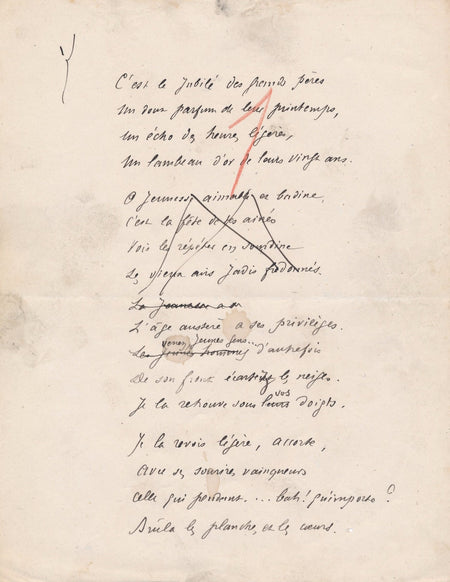 C'est le Jubilé des grands pères
Un doux parfum de leur printemps,
Un écho des heures légères,
Un lambeau d'or de leurs vingt ans.
O Jeunesse aimable et badine,
C'est la fête de tes aînés
Vois les répéter en sourdine
Les vieux airs jadis fredonnés.
La Jeunesse a
L'âge austère a ses privilèges.
venez, jeunes gens...
Les jeunes hommes d'autrefois
De son front écartez les neiges.
vos
Je la retrouve sous leurs doigts.
Je la revois légère, accorte,
Avec ses sourires vainqueurs
Celle qui pendant ... bah! qu'importe?
Brûla les planches, et les cœurs.